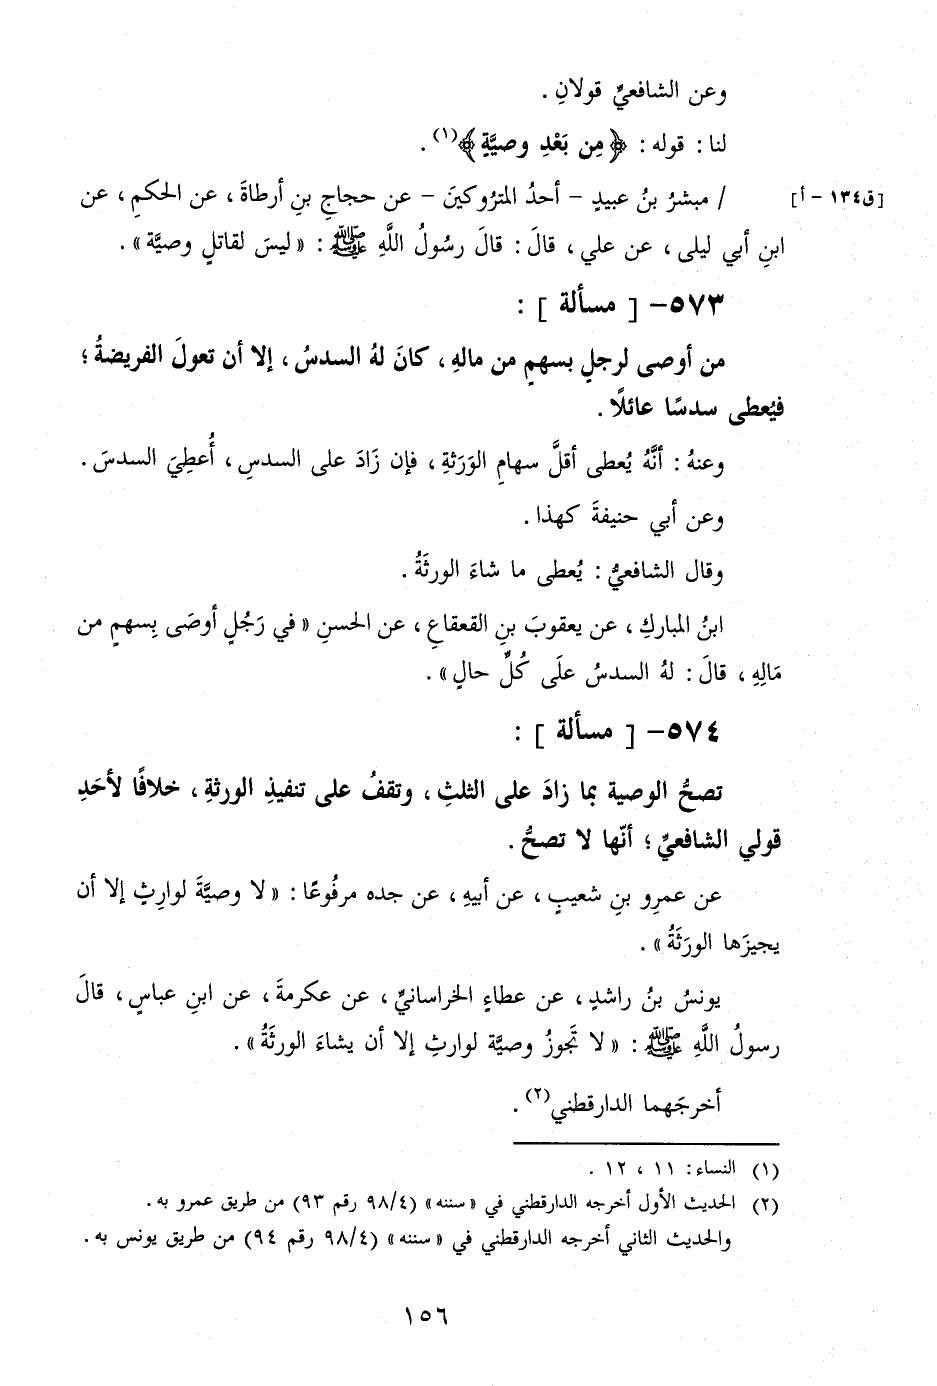 وعن الشافعيِّ قولانِ .
لنا : قوله : ﴿ مِن بَعْدِ وصيَّةٍ ﴾(١) .
[ق١٣٤ - أ] / مبشرُ بنُ عبيدٍ - أحدُ المتروكينَ - عن حجاجِ بنِ أرطاةَ ، عن الحكمِ ، عن
ابنِ أبي ليلى ، عن علي ، قالَ : قالَ رسُولُ اللَّهِ ﷺ : « ليسَ لقاتلٍ وصيَّة» .
٥٧٣- [ مسألة ] :
من أوصى لرجلٍ بسهمٍ من مالهِ ، كانَ لهُ السدسُ ، إلا أن تعولَ الفريضةُ ؛
فيُعطى سدسًا عائلًا .
وعنهُ : أنَّهُ يُعطى أقلَّ سهامِ الوَرَثةِ ، فإن زَادَ على السدسِ ، أُعطِيَ السدسَ .
وعن أبي حنيفةَ كهذا .
وقال الشافعيُّ : يُعطى ما شاءَ الورثَةُ .
ابنُ المباركِ ، عن يعقوبَ بنِ القعقاعِ ، عن الحسنِ « في رَجُلٍ أوصَى بِسهمٍ من
مَالِهِ ، قالَ : لهُ السدسُ علَى كُلِّ حالٍ » .
٥٧٤- [ مسألة ] :
تصحُّ الوصية بما زادَ على الثلثِ ، وتقفُ على تنفيذِ الورثةِ ، خلافًا لأحَدِ
قولي الشافعيِّ ؛ أنّها لا تصحُّ .
عن عمرِو بنِ شعيبٍ ، عن أبيهِ ، عن جده مرفُوعًا : « لا وصيَّةَ لوارثٍ إلا أن
يجيزَها الورَثَةُ » .
يونسُ بنُ راشدٍ ، عن عطاءٍ الخراسانيِّ ، عن عكرمةَ ، عن ابنِ عباسٍ ، قالَ
رسولُ اللَّهِ ﷺ : « لا تَجوزُ وصيَّة لوارثٍ إلا أن يشاءَ الورثَةُ » .
أخرجَهما الدارقطني(٢) .
(١) النساء : ١١ ، ١٢ .
(٢) الحديث الأول أخرجه الدارقطني في « سننه » (٩٨/٤ رقم ٩٣) من طريق عمرو به .
والحديث الثاني أخرجه الدارقطني في « سننه » (٩٨/٤ رقم ٩٤) من طريق يونس به .
١٥٦